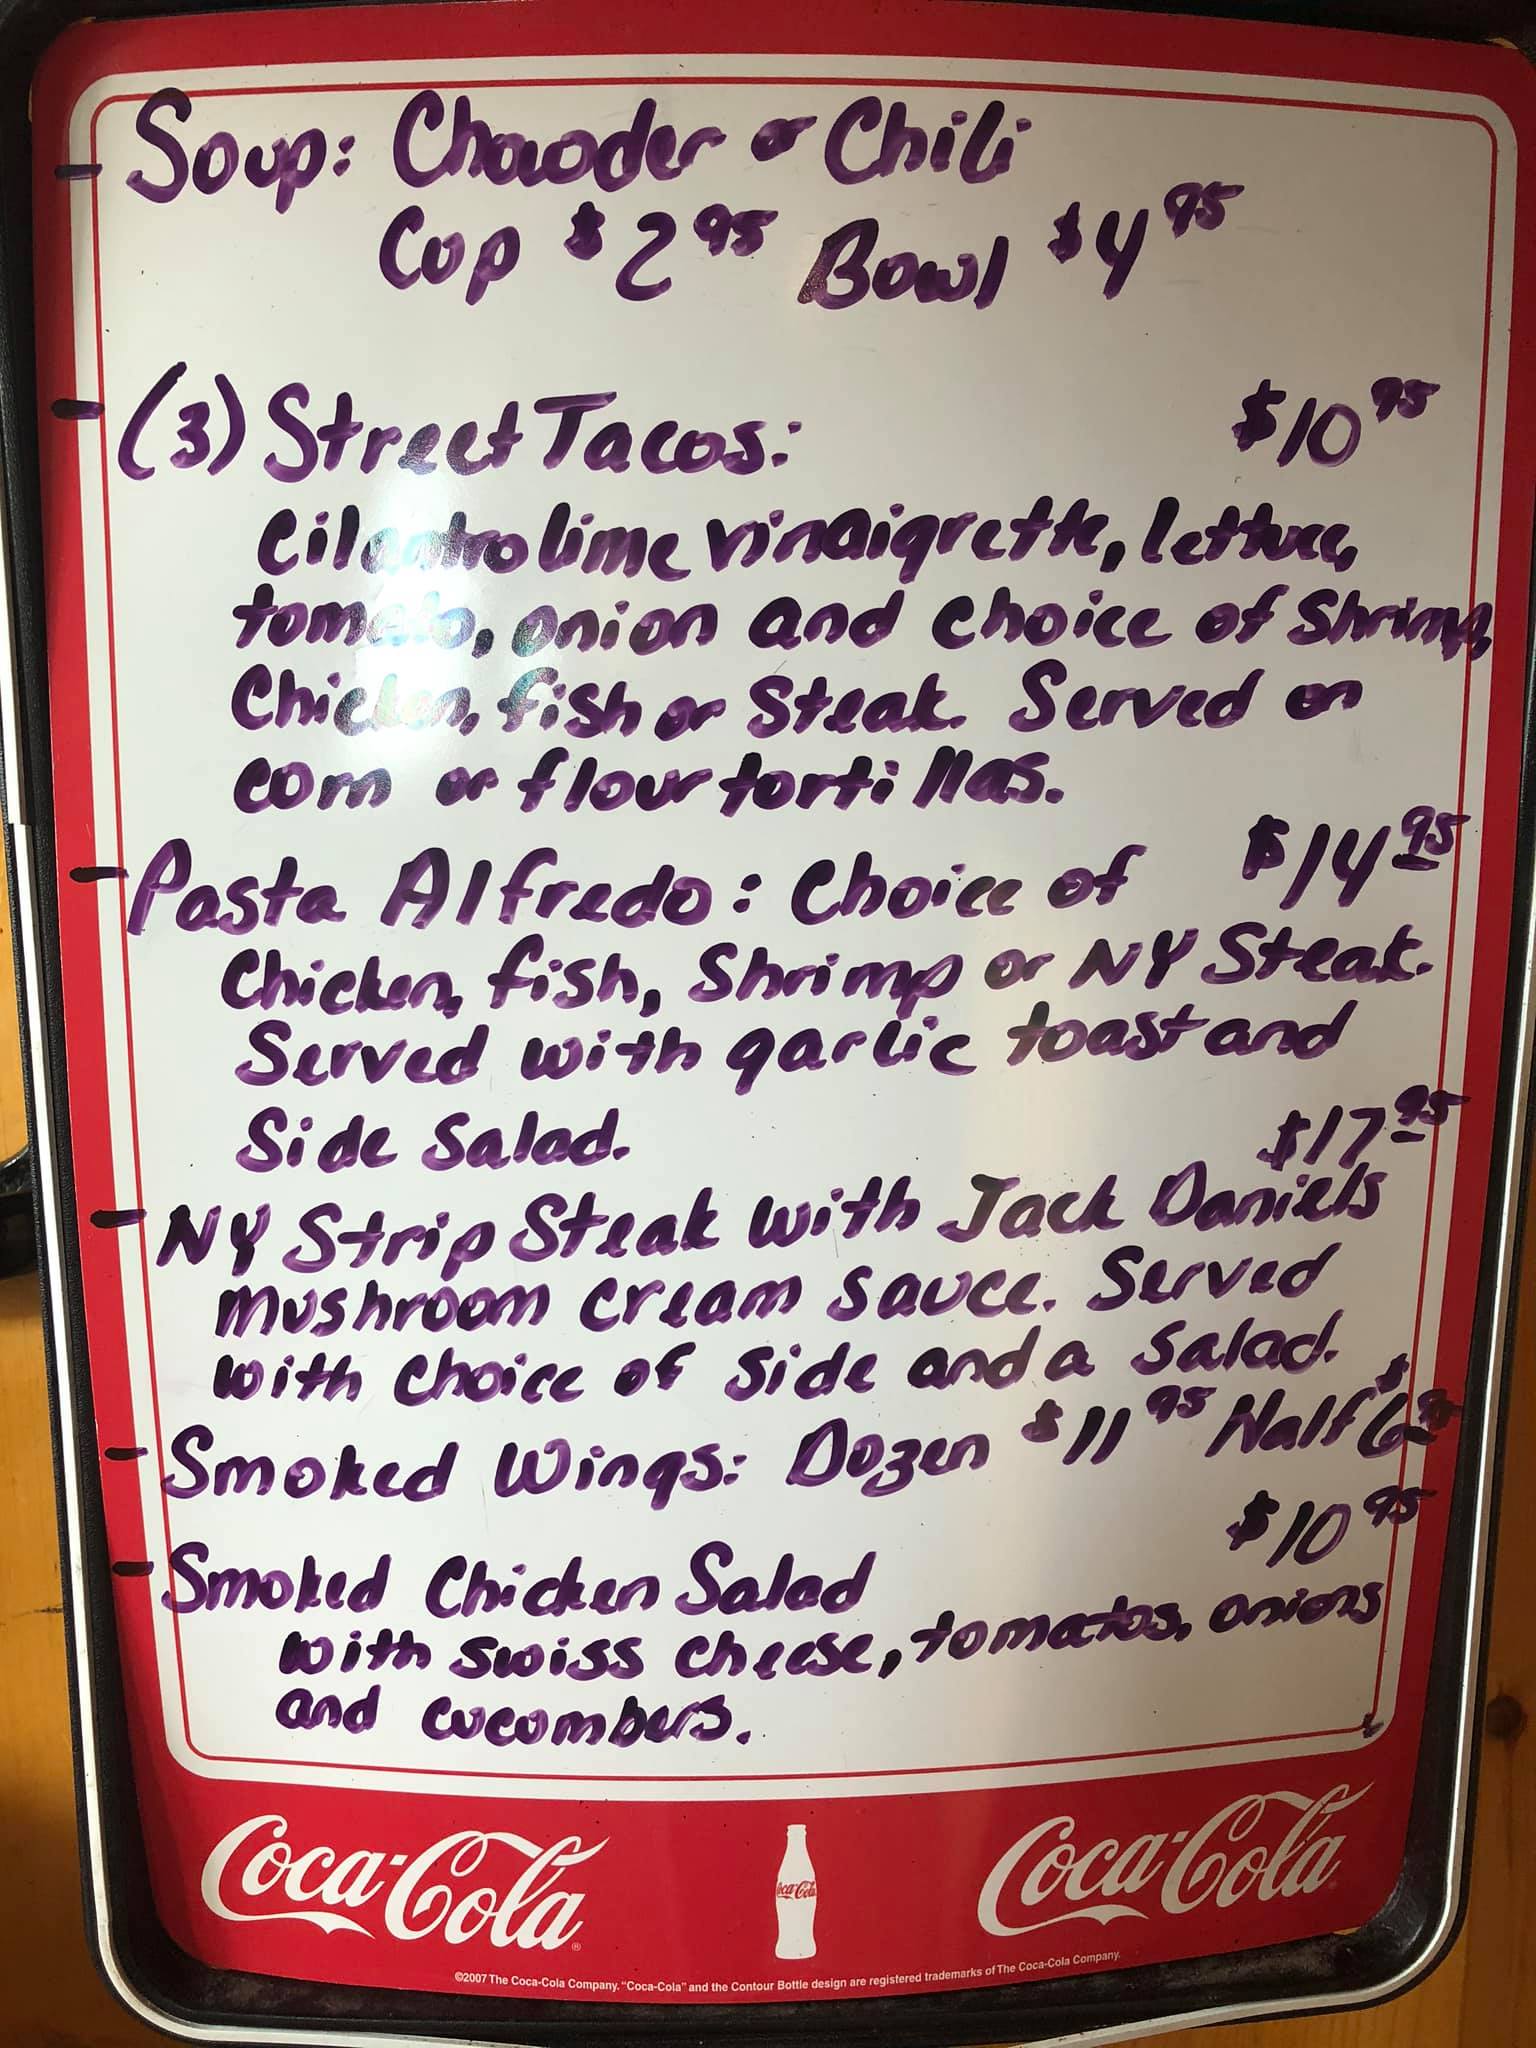 - Soup: Chowder or Chili
Cup $2.95 Bowl $4.95
- (3) Street Tacos: $10.95
Cilantro lime vinaigrette, lettuce,
tomato, onion and choice of Shrimp,
Chicken, fish or Steak. Served on
corn or flour tortillas.
- Pasta Alfredo: Choice of $14.95
Chicken, fish, Shrimp or NY Steak.
Served with garlic toast and
Side Salad. $17.95
- NY Strip Steak with Jack Daniels
Mushroom cream sauce. Served
with choice of side and a salad.
- Smoked Wings: Dozen $11.95 Half $6
$10.95
- Smoked Chicken Salad
with swiss cheese, tomatos, onions
and cucombers.
Coca-Cola
Coca-Cola
Coca-Cola
©2007 The Coca-Cola Company. "Coca-Cola" and the Contour Bottle design are registered trademarks of The Coca-Cola Company.